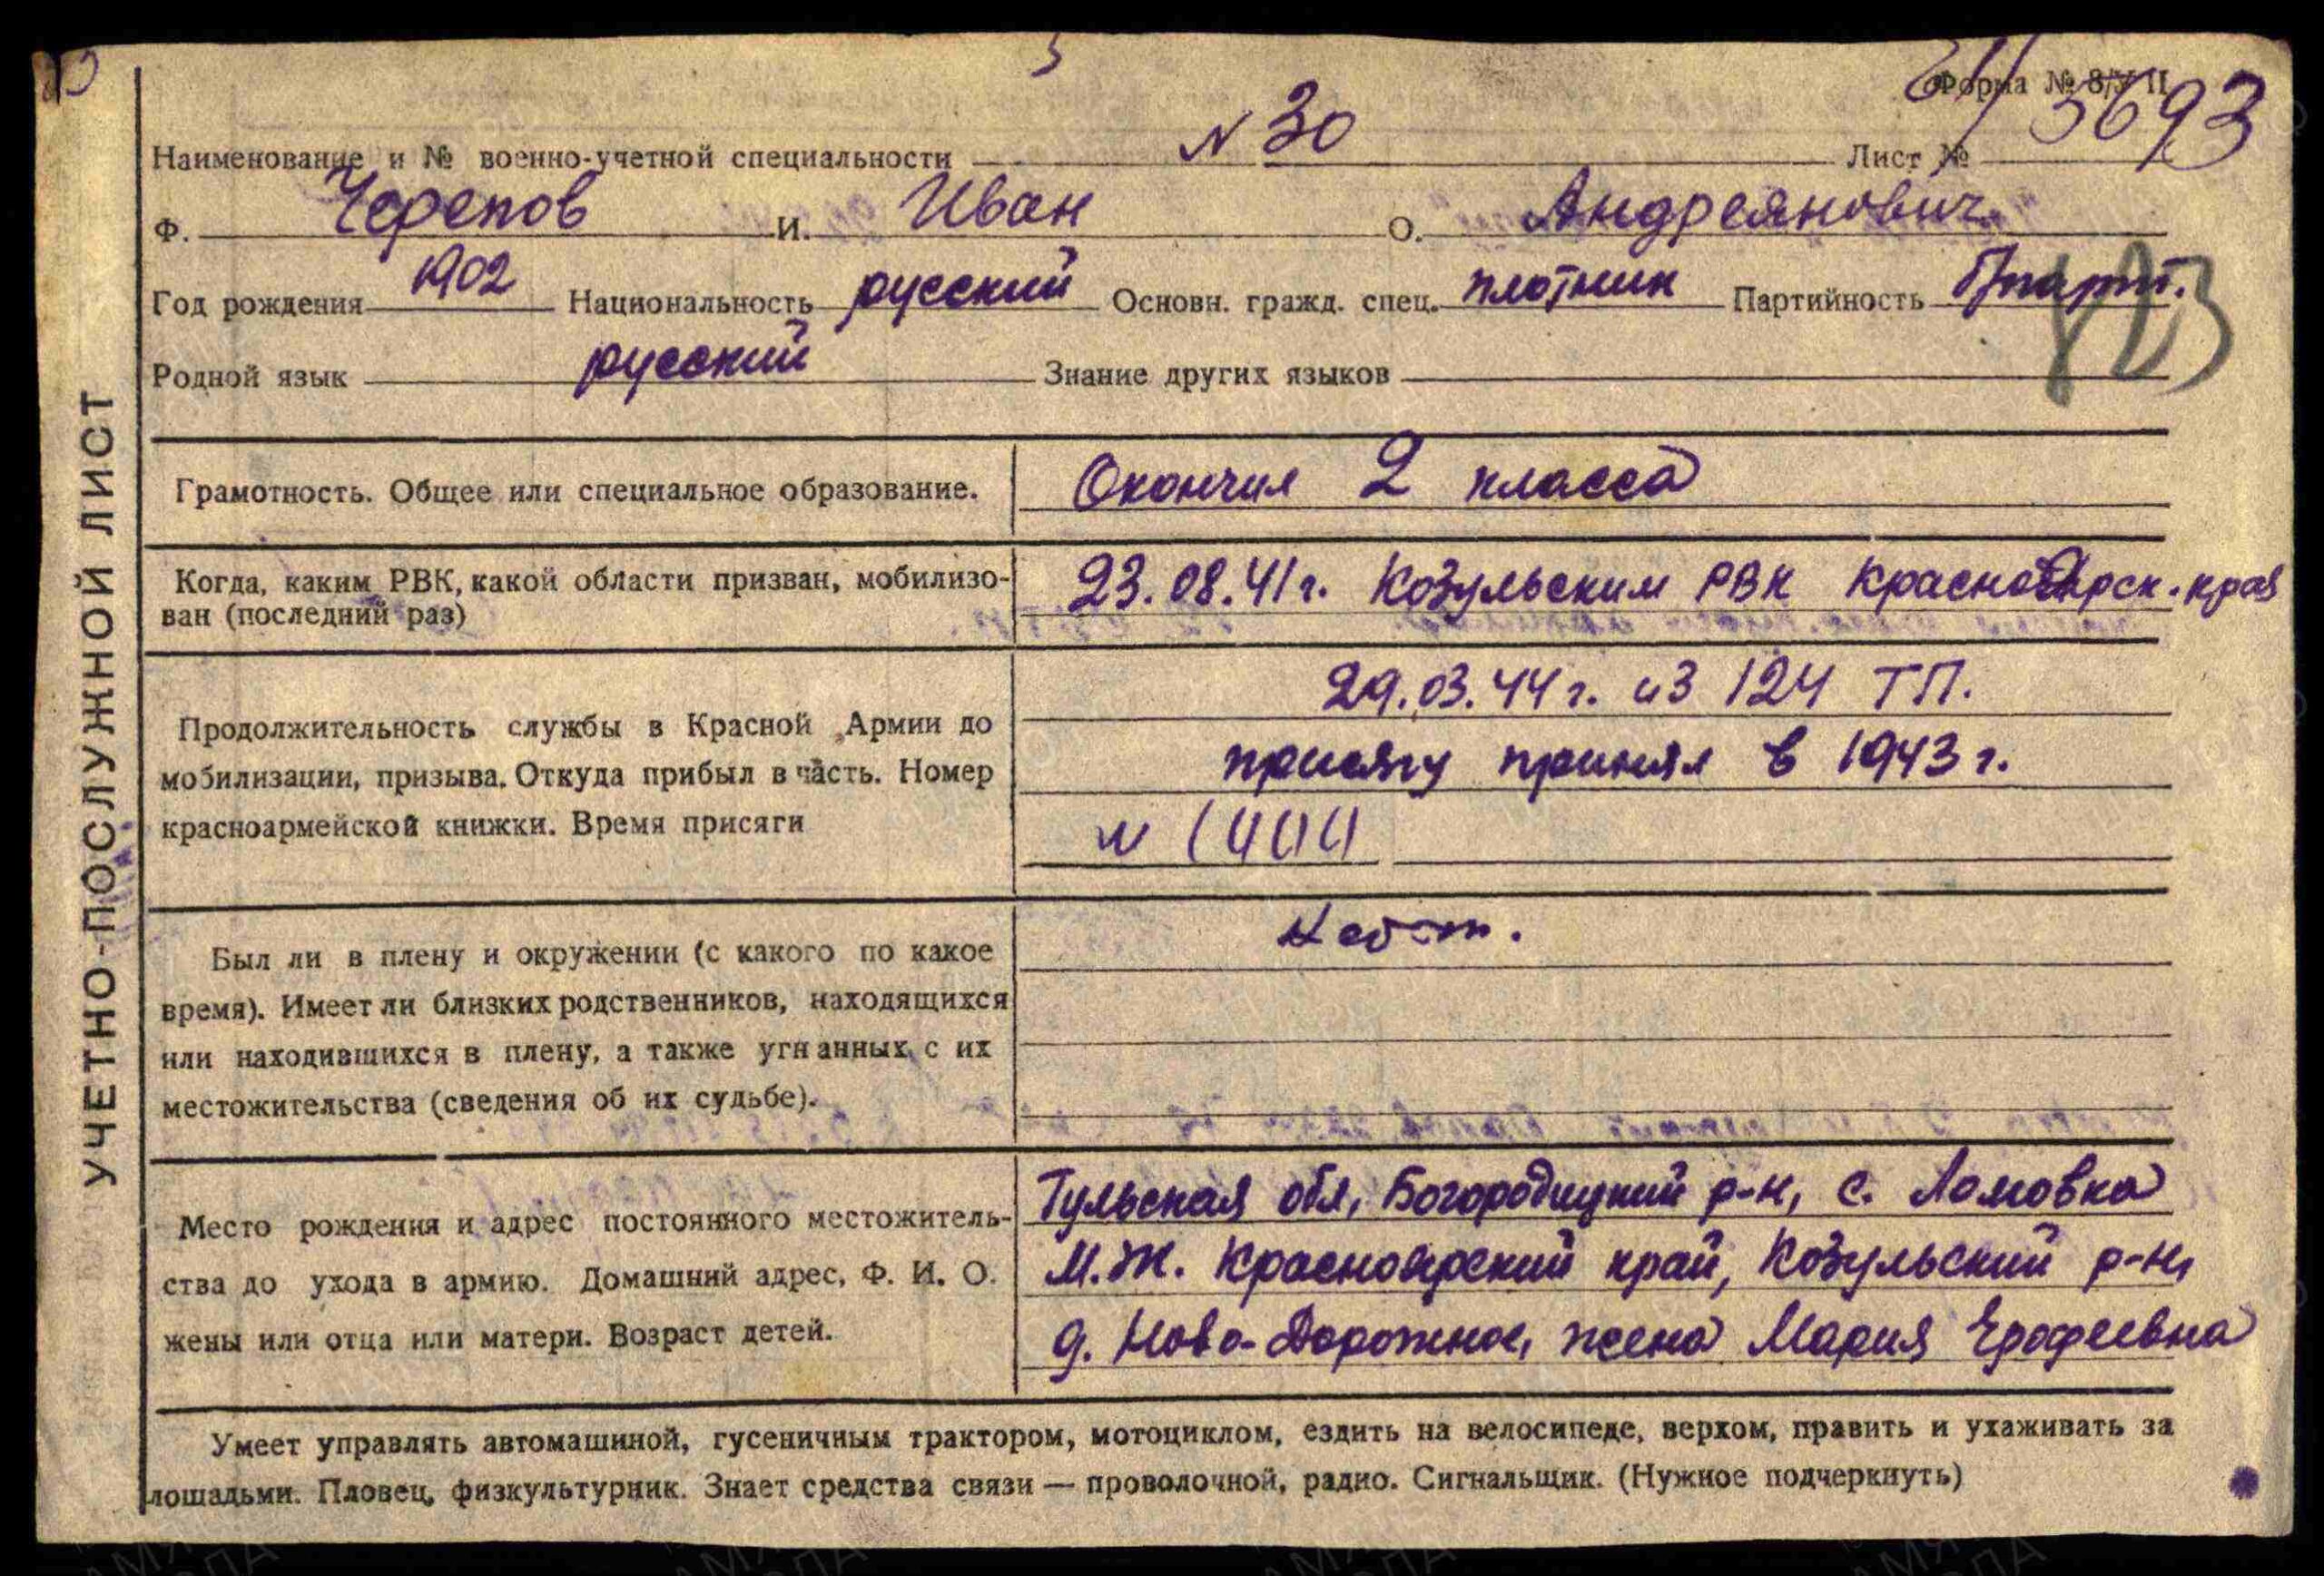 УЧЕТНО-ПОСЛУЖНОЙ ЛИСТ
Форма № 8/У II
Наименование и № военно-учетной специальности N 30 Лист № 3693
Ф. Черепов И. Иван О. Андреянович
Год рождения 1902 Национальность русский Основн. гражд. спец. плотник Партийность
Родной язык русский Знание других языков
Грамотность. Общее или специальное образование.
Окончил 2 класса
Когда, каким РВК, какой области призван, мобилизо-
ван (последний раз)
23.08.41г. Козульским РВК Красноярск. края
Продолжительность службы в Красной Армии до
мобилизации, призыва. Откуда прибыл в часть. Номер
красноармейской книжки. Время присяги
29.03.44г. из 124 ТП.
присягу принял в 1943г.
Был ли в плену и окружении (с какого по какое
время). Имеет ли близких родственников, находящихся
или находившихся в плену, а также угнанных с их
местожительства (сведения об их судьбе).
Место рождения и адрес постоянного местожитель-
ства до ухода в армию. Домашний адрес, Ф. И. О.
жены или отца или матери. Возраст детей.
Тульская обл, Богородицкий р-н, с. Ломовка
М.Ж. Красноярский край, Козульский р-н,
д. Ново-Дорожное, жена Мария Ерофеевна
Умеет управлять автомашиной, гусеничным трактором, мотоциклом, ездить на велосипеде, верхом, править и ухаживать за
лошадьми. Пловец, физкультурник. Знает средства связи — проволочной, радио. Сигнальщик. (Нужное подчеркнуть)